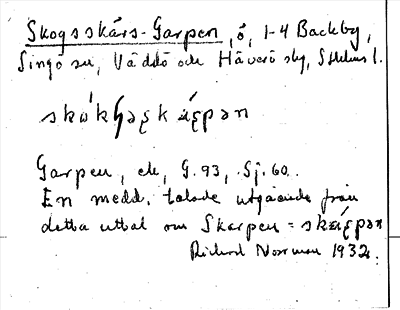 Skogsskärs-Garpen, ö, 1-4 Backby,
Singö sn, Väddö och Häverö skg, Sthlms l.
Garpen, ek, G. 93, Sj. 60.
En medd. talade utgående från
detta uttal om Skarpen =
Rickard Norrman 1932.